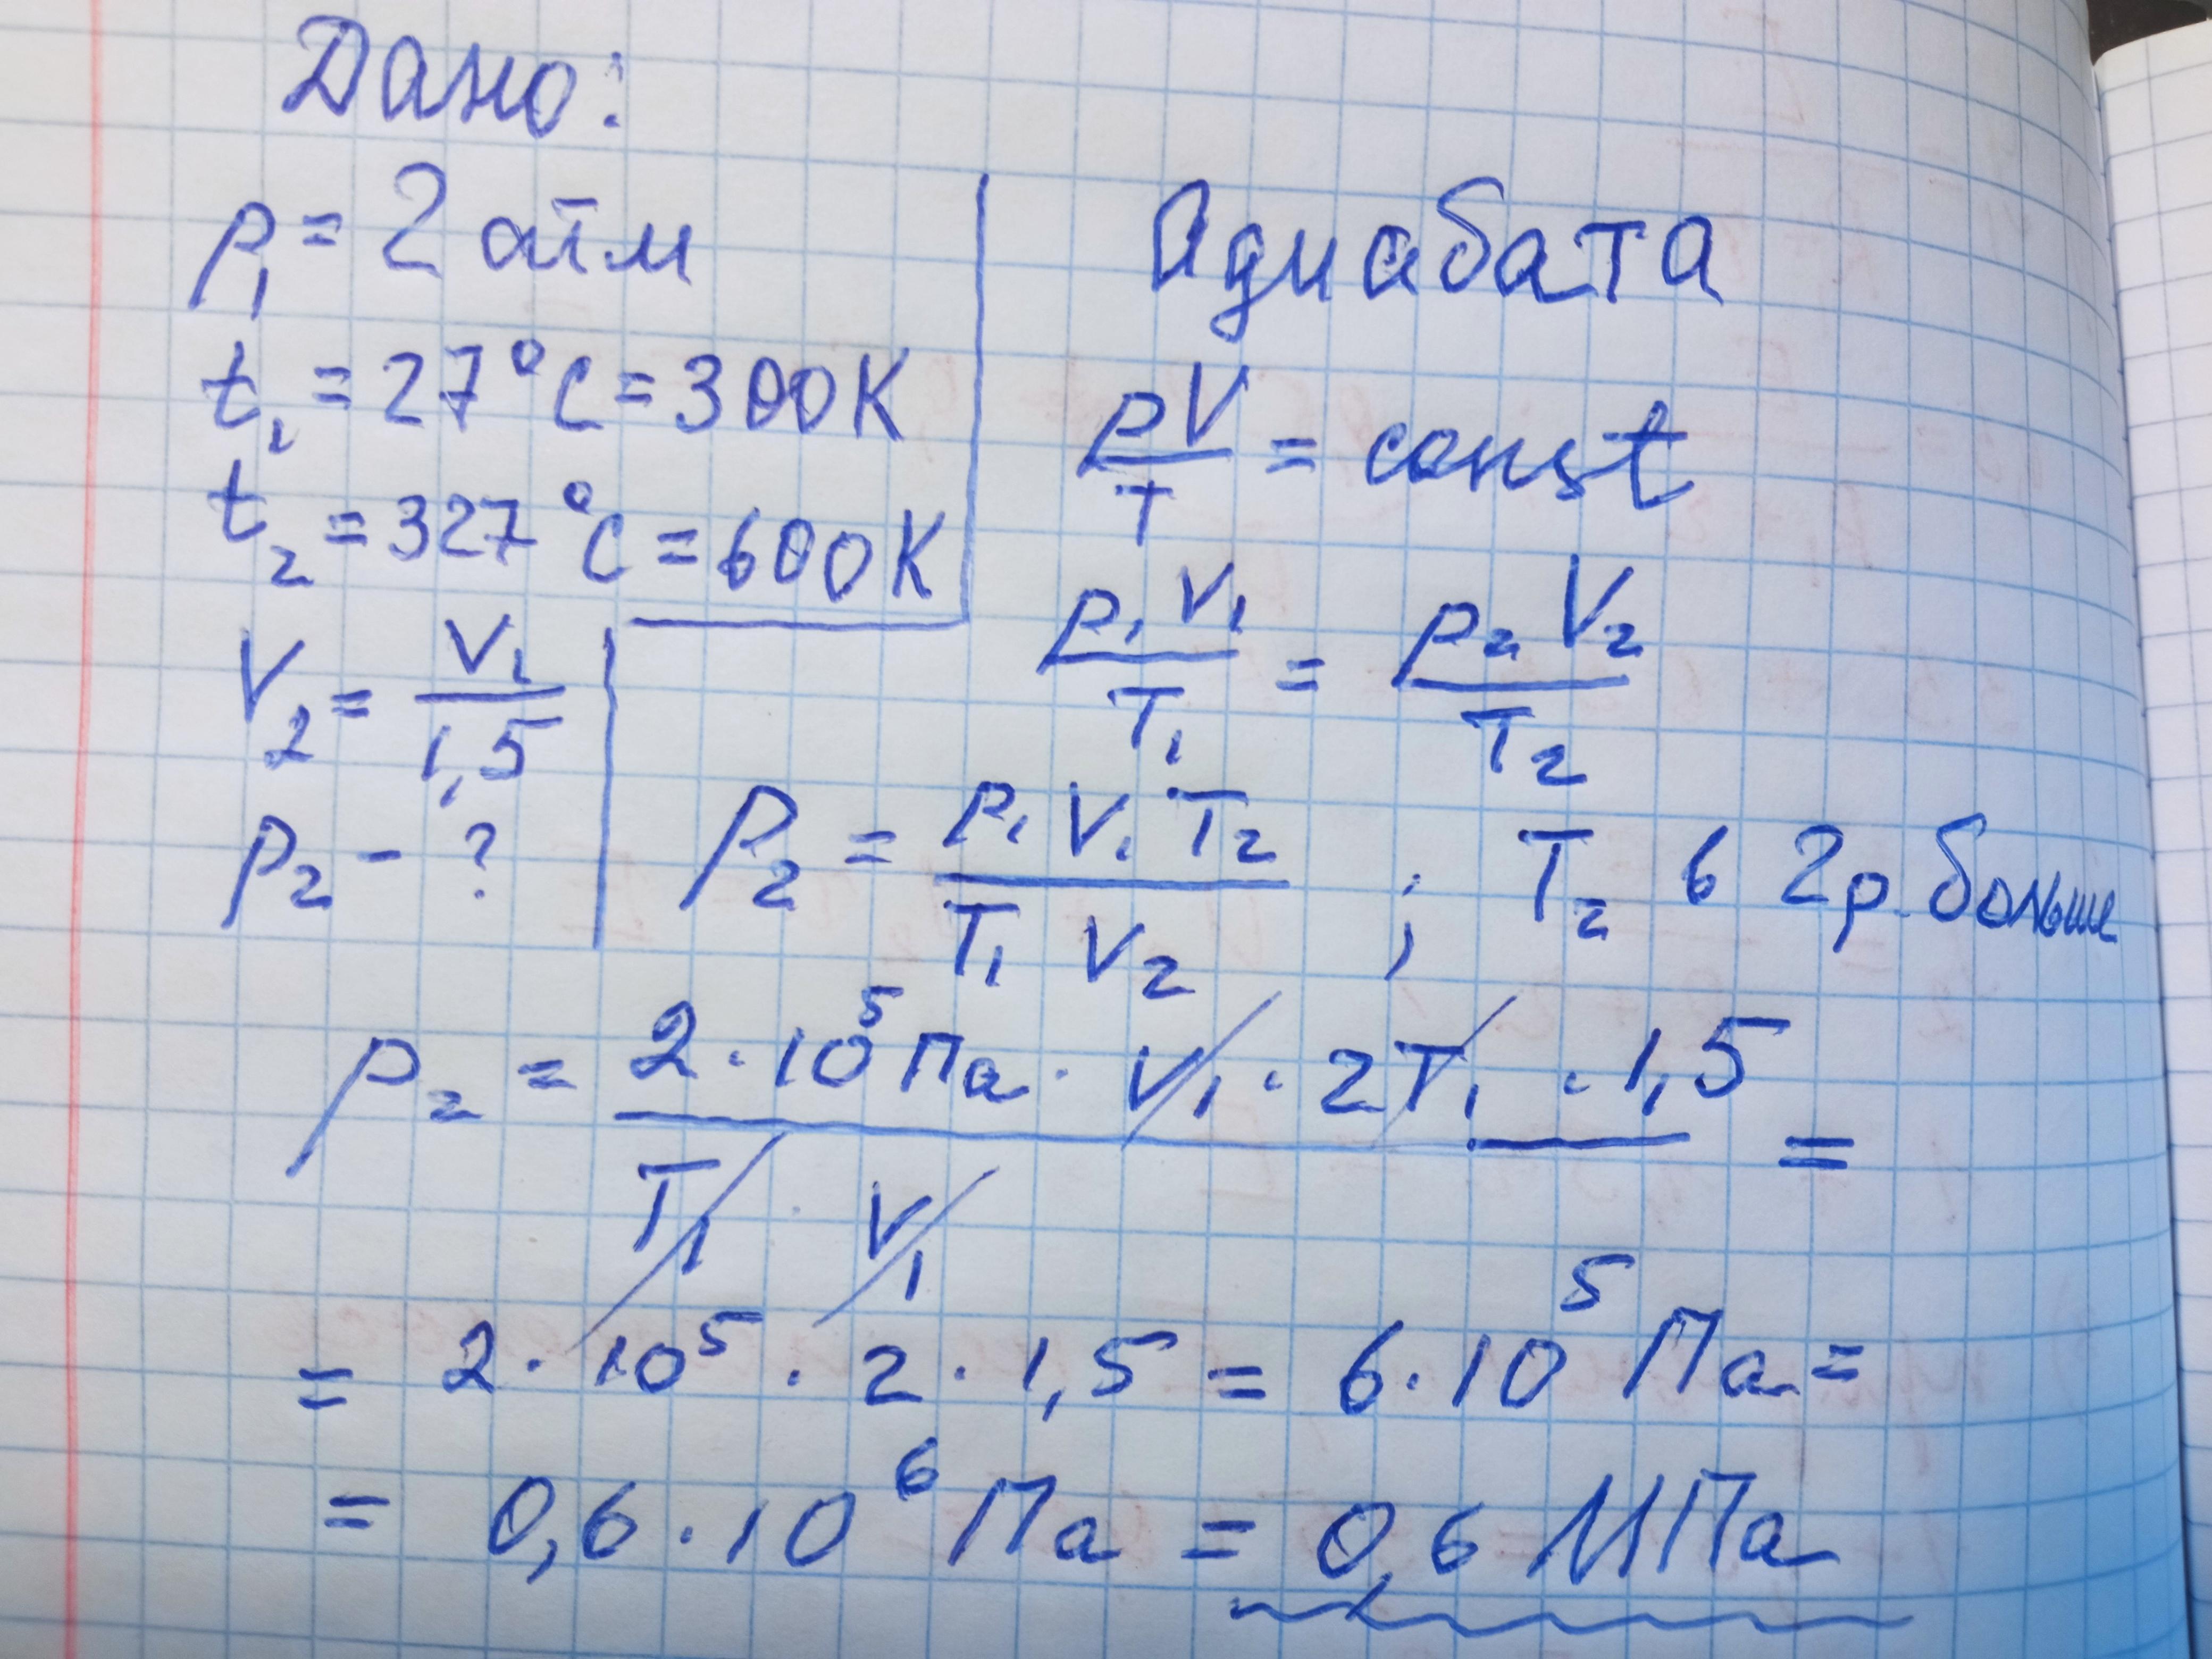 Дано:
p₁ = 2 атм
t₁ = 27°C = 300K
t₂ = 327°C = 600K
V₂ = V₁ / 1,5
p₂ - ?
Адиабата
pV / T = const
p₁V₁ / T₁ = p₂V₂ / T₂
p₂ = p₁V₁T₂ / T₁V₂ ; T₂ в 2р. больше
p₂ = 2·10⁵Па·V₁·2T₁·1,5 / T₁·V₁ =
= 2·10⁵·2·1,5 = 6·10⁵Па =
= 0,6·10⁶Па = 0,6 МПа